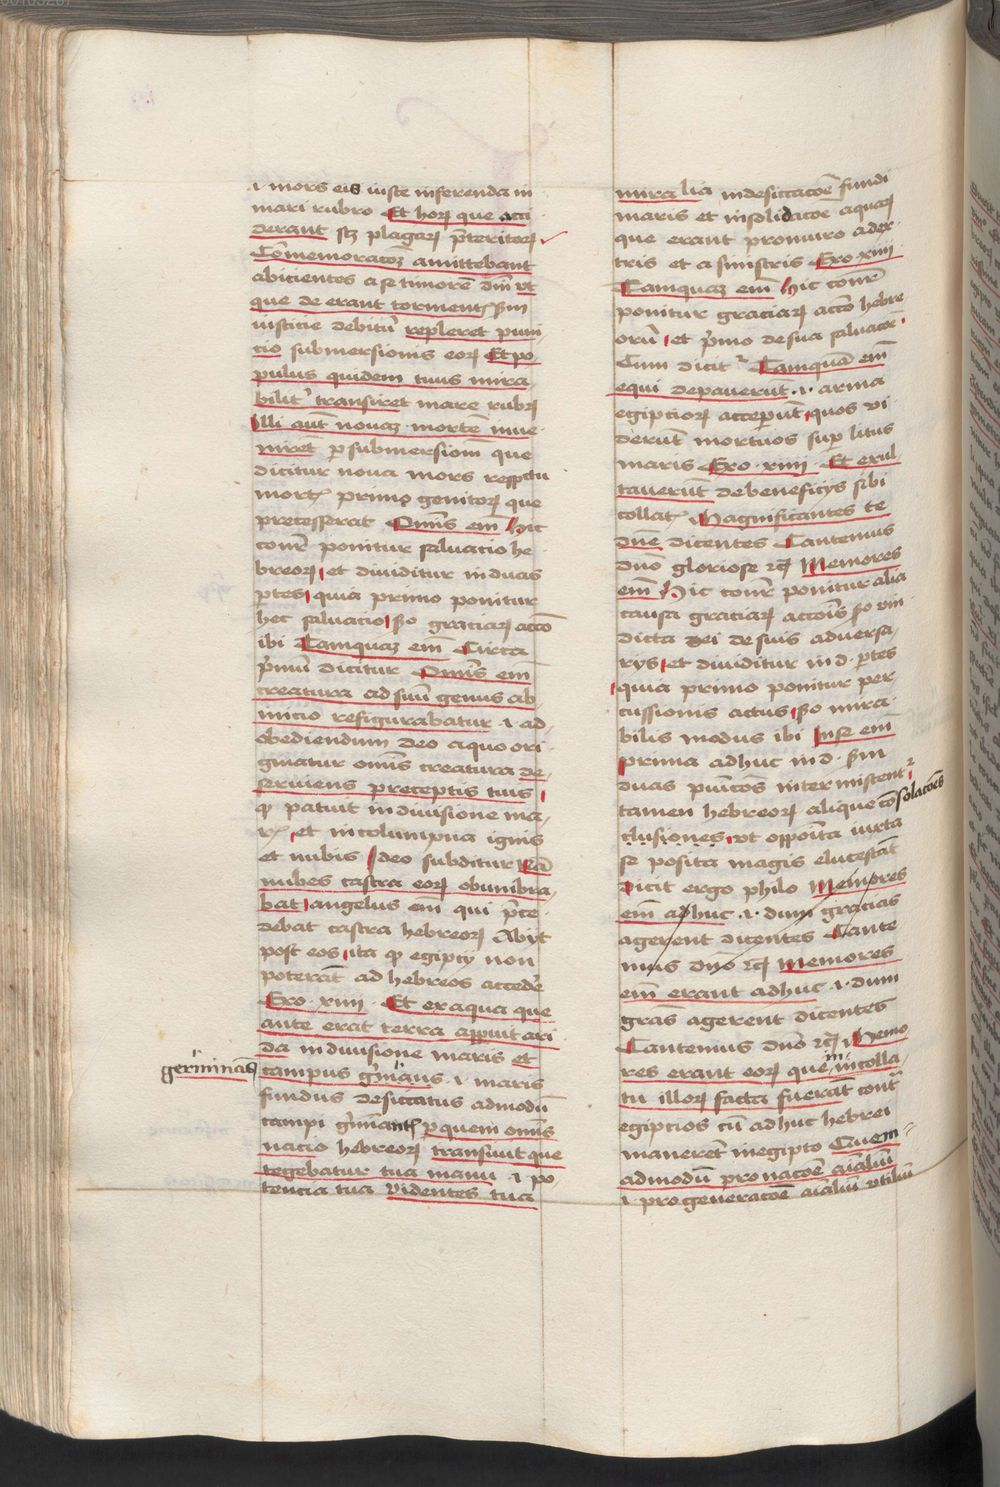 .i. mors eis iuste inferenda in
mari rubro Et horꝝ que acci
derant sꝫ plagarꝝ p̄teritorꝝ
Cōmemoracōꝫ amittebant
abicientes a se timorē dn̄i vt
que de erant tormentꝭ scđm
iusticie debitū repleret puni
cio submersionis eorꝝ Et po
pulus quidem tuus mira
bilit᷑ transiret mare rubrꝝ
Illi aūt nouaꝫ mortē inue
nirēt ꝑ submersionē que
dicitur noua mors respectu
mortꝭ primogenitorꝝ que
precesserat Omīs em̄ Hic
conr̄ ponitur saluacio he
breorꝝ et diuiditur in duas
ꝑtes quia primo ponitur
hec saluacio so graciarꝝ accō
ibi Tamquaꝫ em̄ Circa
p̄mū dicitur Omīs em̄
creatura ad suū genus ab
inicio refigurabatur .i. ad
obediendum deo a quo ori
ginatur omīs creatura de
seruiens preceptis tuis
ꝙ patuit in diuisione ma
rꝭ et in columpna ignis
et nubis Ideo subditur Nā
nubes castra eorꝝ obumbra
bat angelus em̄ qui p̄ce
debat castra hebreorꝝ Abyt
post eos ita ꝙ egipty non
poterāt ad hebreos accedē
Exo · xiiii · Et ex aqua que
ante erat terra apparuit ari
da in diuisione maris et
germinās
campus gr̄mīans .i. maris
fundus desiccatus admodū
campi gr̄mīantꝭ ꝑ quem omīs
nacio hebreorꝝ transiuit que
tegebatur tua manu .i. po
tencia tua videntes tua
mirabilia in desiccacōe fundi
maris et in solidacōe aquarꝝ
que erant pro muro a dex
tris et a sinistris Exo · xiiii
Tamquaꝫ em̄ Hic conr̄
ponitur graciarꝝ accō hebre
orū et p̄mo de sua saluacōe
Cum dicit᷑ Tamquā em̄
equi depauerūt .i. arma
egipciorꝝ acceperūt quos vi
derūt mortuos sup̄ litus
maris Exo · xiiii Et exul
tauerūt de beneficÿs sibi
collatꝭ Magnificantes te
dn̄e dicentes Cantemus
dn̄o gloriose ꝛcꝫ Memores
em̄ Hic conr̄ ponitur alia
causa graciarꝝ accōis so vin
dicta dei de suis aduersa
rÿs et diuiditur in d. ꝑtes
quia primo ponitur per
cussionis actus so mira
bilis modus ibi Inse em̄
prima adhuc in d. scđm
duas punicōes intermiscent᷑
tamen hebreorꝝ alique cōsolacōes
clusiones vt oppōita iuxta
se posita magis elucescāt
Dicit ergo philo Memores
em̄ adhuc .i. dum gracias
agerent dicentes Cante
mus dn̄o ꝛcꝫ Memores
em̄ erant adhuc .i. dum
gr̄as agerent dicentes
Cantemus dn̄o ꝛcꝫ Memo
res erant eorꝝ que in incola
tu illorꝝ facta fuerāt cont᷑
egipcios cū adhuc hebrei
manerēt in egipto Quem
admodū pro nacōe aīaliū
.i. pro generacōe aīaliū vtiliū